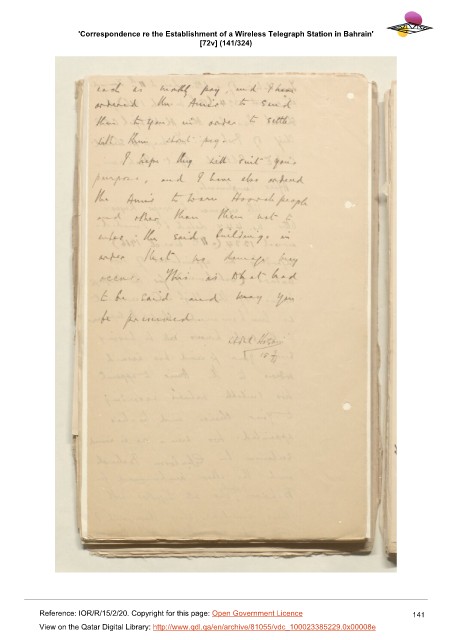 'Correspondence re the Establishment of a Wireless Telegraph Station in Bahrain'
[72v] (141/324)
each as monthly pay, and I have
ordered the Amir to send
them to you in order to settle
with them about pay.
I hope they will suit your
purpose, and I have also ordered
the Amir to warn Howah people
and other than them not to
enter the said buildings in
order that no damage may
occur. This is what had
to be said and may you
be preserved.
Reference: IOR/R/15/2/20. Copyright for this page: Open Government Licence
View on the Qatar Digital Library: http://www.qdl.qa/en/archive/81055/vdc_100023385229.0x00008e
141